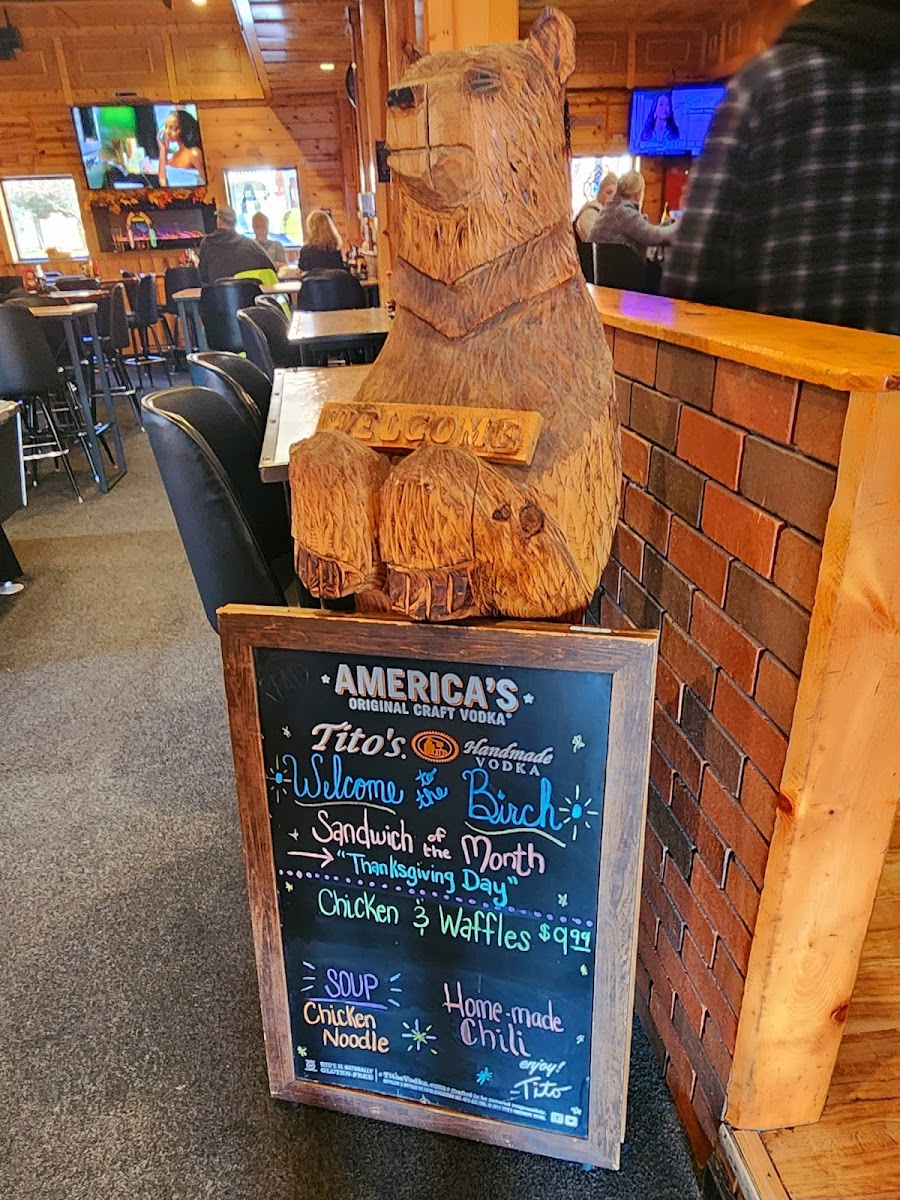 WELCOME
AMERICA'S
ORIGINAL CRAFT VODKA
Tito's Handmade
VODKA
Welcome to the Birch
Sandwich of the Month
→ "Thanksgiving Day"
Chicken & Waffles $9.99
SOUP
Chicken
Noodle
Home-made
Chili
enjoy!
-Tito
TITO'S IS NATURALLY
GLUTEN-FREE
TitosVodka.com